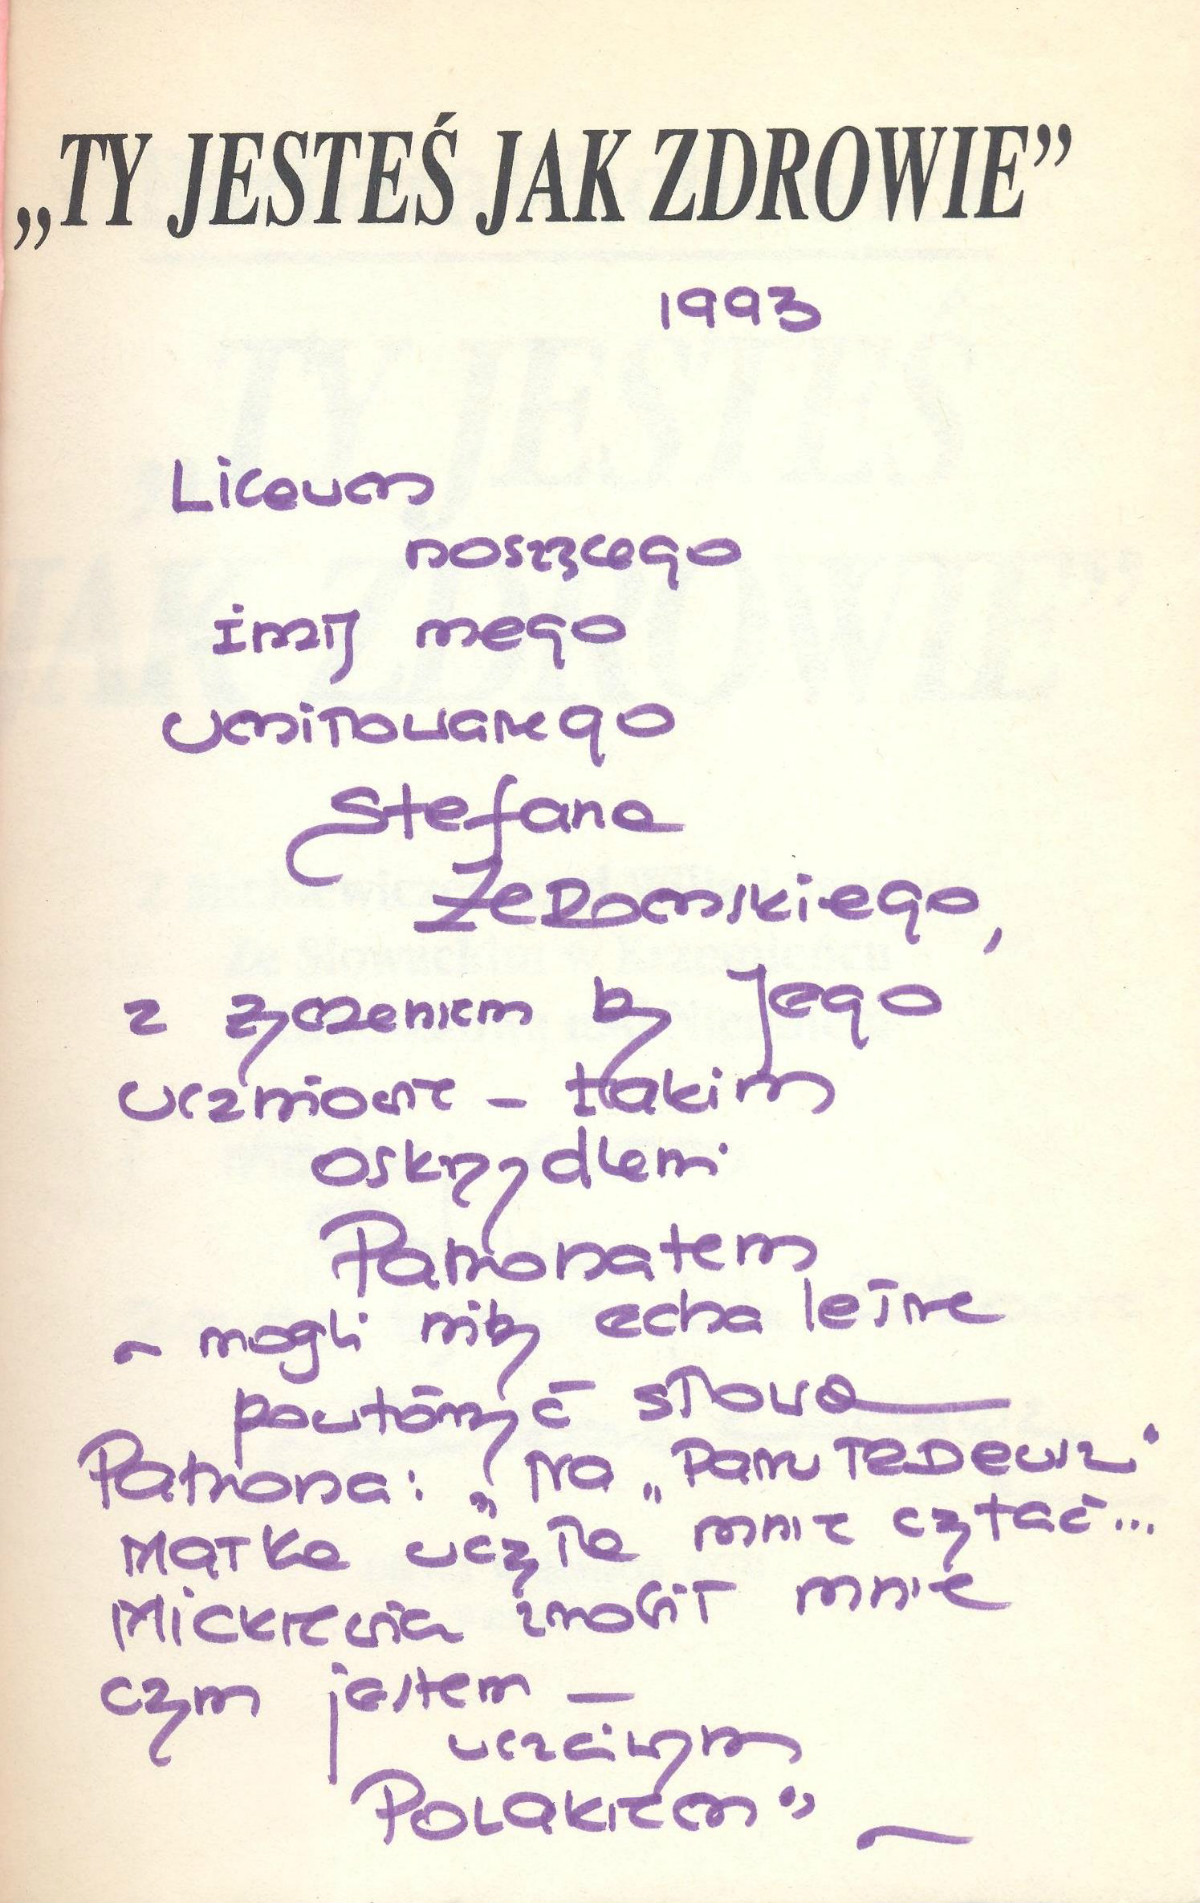 „TY JESTEŚ JAK ZDROWIE”
1993
Liceum
noszącego
imię mego
umiłowanego
Stefana
Żeromskiego,
z życzeniem by Jego
uczniowie – takim
oskrzydleni
Patronatem
– mogli niby echa leśne
powtórzyć słowa
Patrona: „Na „Panu Tadeuszu”
Matka uczyła mnie czytać...
Mickiewicz zrobił mnie
czym jestem –
uczciwym
Polakiem”